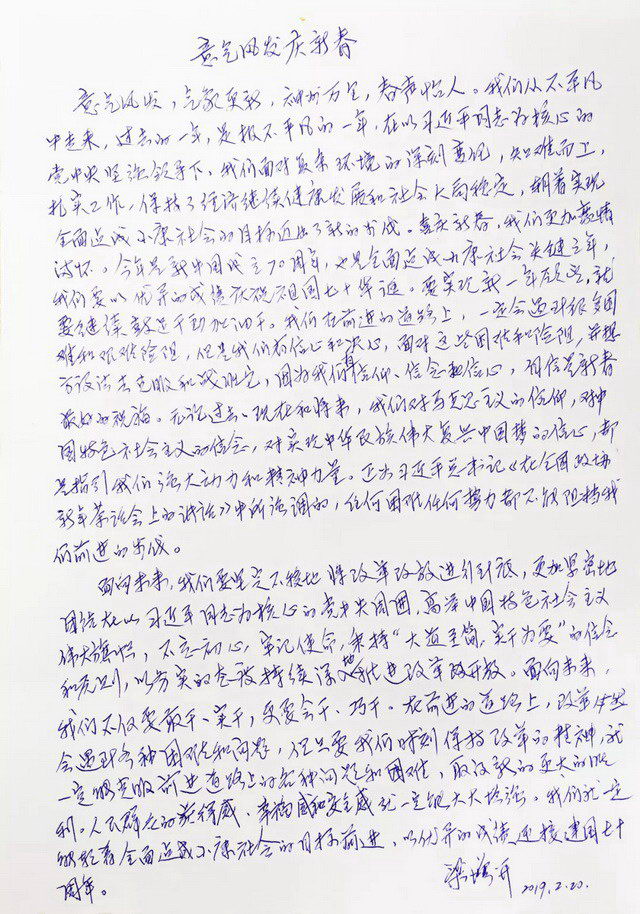 意气风发庆新春
意气风发，气象更新，神州万里，春声怡人。我们从不平凡
中走来，过去的一年，是极不平凡的一年，在以习近平同志为核心的
党中央坚强领导下，我们面对复杂环境的深刻变化，知难而上，
扎实工作，保持了经济继续健康发展和社会大局稳定，朝着实现
全面建成小康社会的目标迈出了新的步伐。喜庆新春，我们更加豪情
满怀。今年是新中国成立70周年，也是全面建成小康社会关键之年，
我们要以优异的成绩庆祝祖国七十华诞。要实现新一年愿景，就
要继续实干加油干。我们在前进的道路上，一定会遇到很多困
难和艰难险阻，但是我们有信心和决心，面对这些困难和险阻，并想
方设法去克服和战胜它，因为我们有信仰、信念和信心，相信是新春
最好的祝福。无论过去、现在和将来，我们对马克思主义的信仰，对中
国特色社会主义的信念，对实现中华民族伟大复兴中国梦的信心，都
是指引我们强大动力和精神力量。正如习近平总书记《在全国政协
新年茶话会上的讲话》中所强调的，任何困难任何势力都不能阻挡我
们前进的步伐。
面向未来，我们要坚定不移地将改革开放进行到底，更加紧密地
团结在以习近平同志为核心的党中央周围，高举中国特色社会主义
伟大旗帜，不忘初心，牢记使命，秉持“大道至简，实干为要”的信念
和原则，以务实的态度持续深地推进改革开放。面向未来，
我们不仅要敢干、实干，更要会干、巧干。在前进的道路上，改革中发
会遇到各种困难和问题，但只要我们时刻保持改革的精神，就
一定够克服前进道路上的各种问题和困难，取得新的更大的胜
利。人民群众的获得感、幸福感和安全感就一定能大大增强。我们就一定
能够朝着全面建成小康社会的目标前进，以优异的成绩迎接建国七十
周年。
2019.2.20.